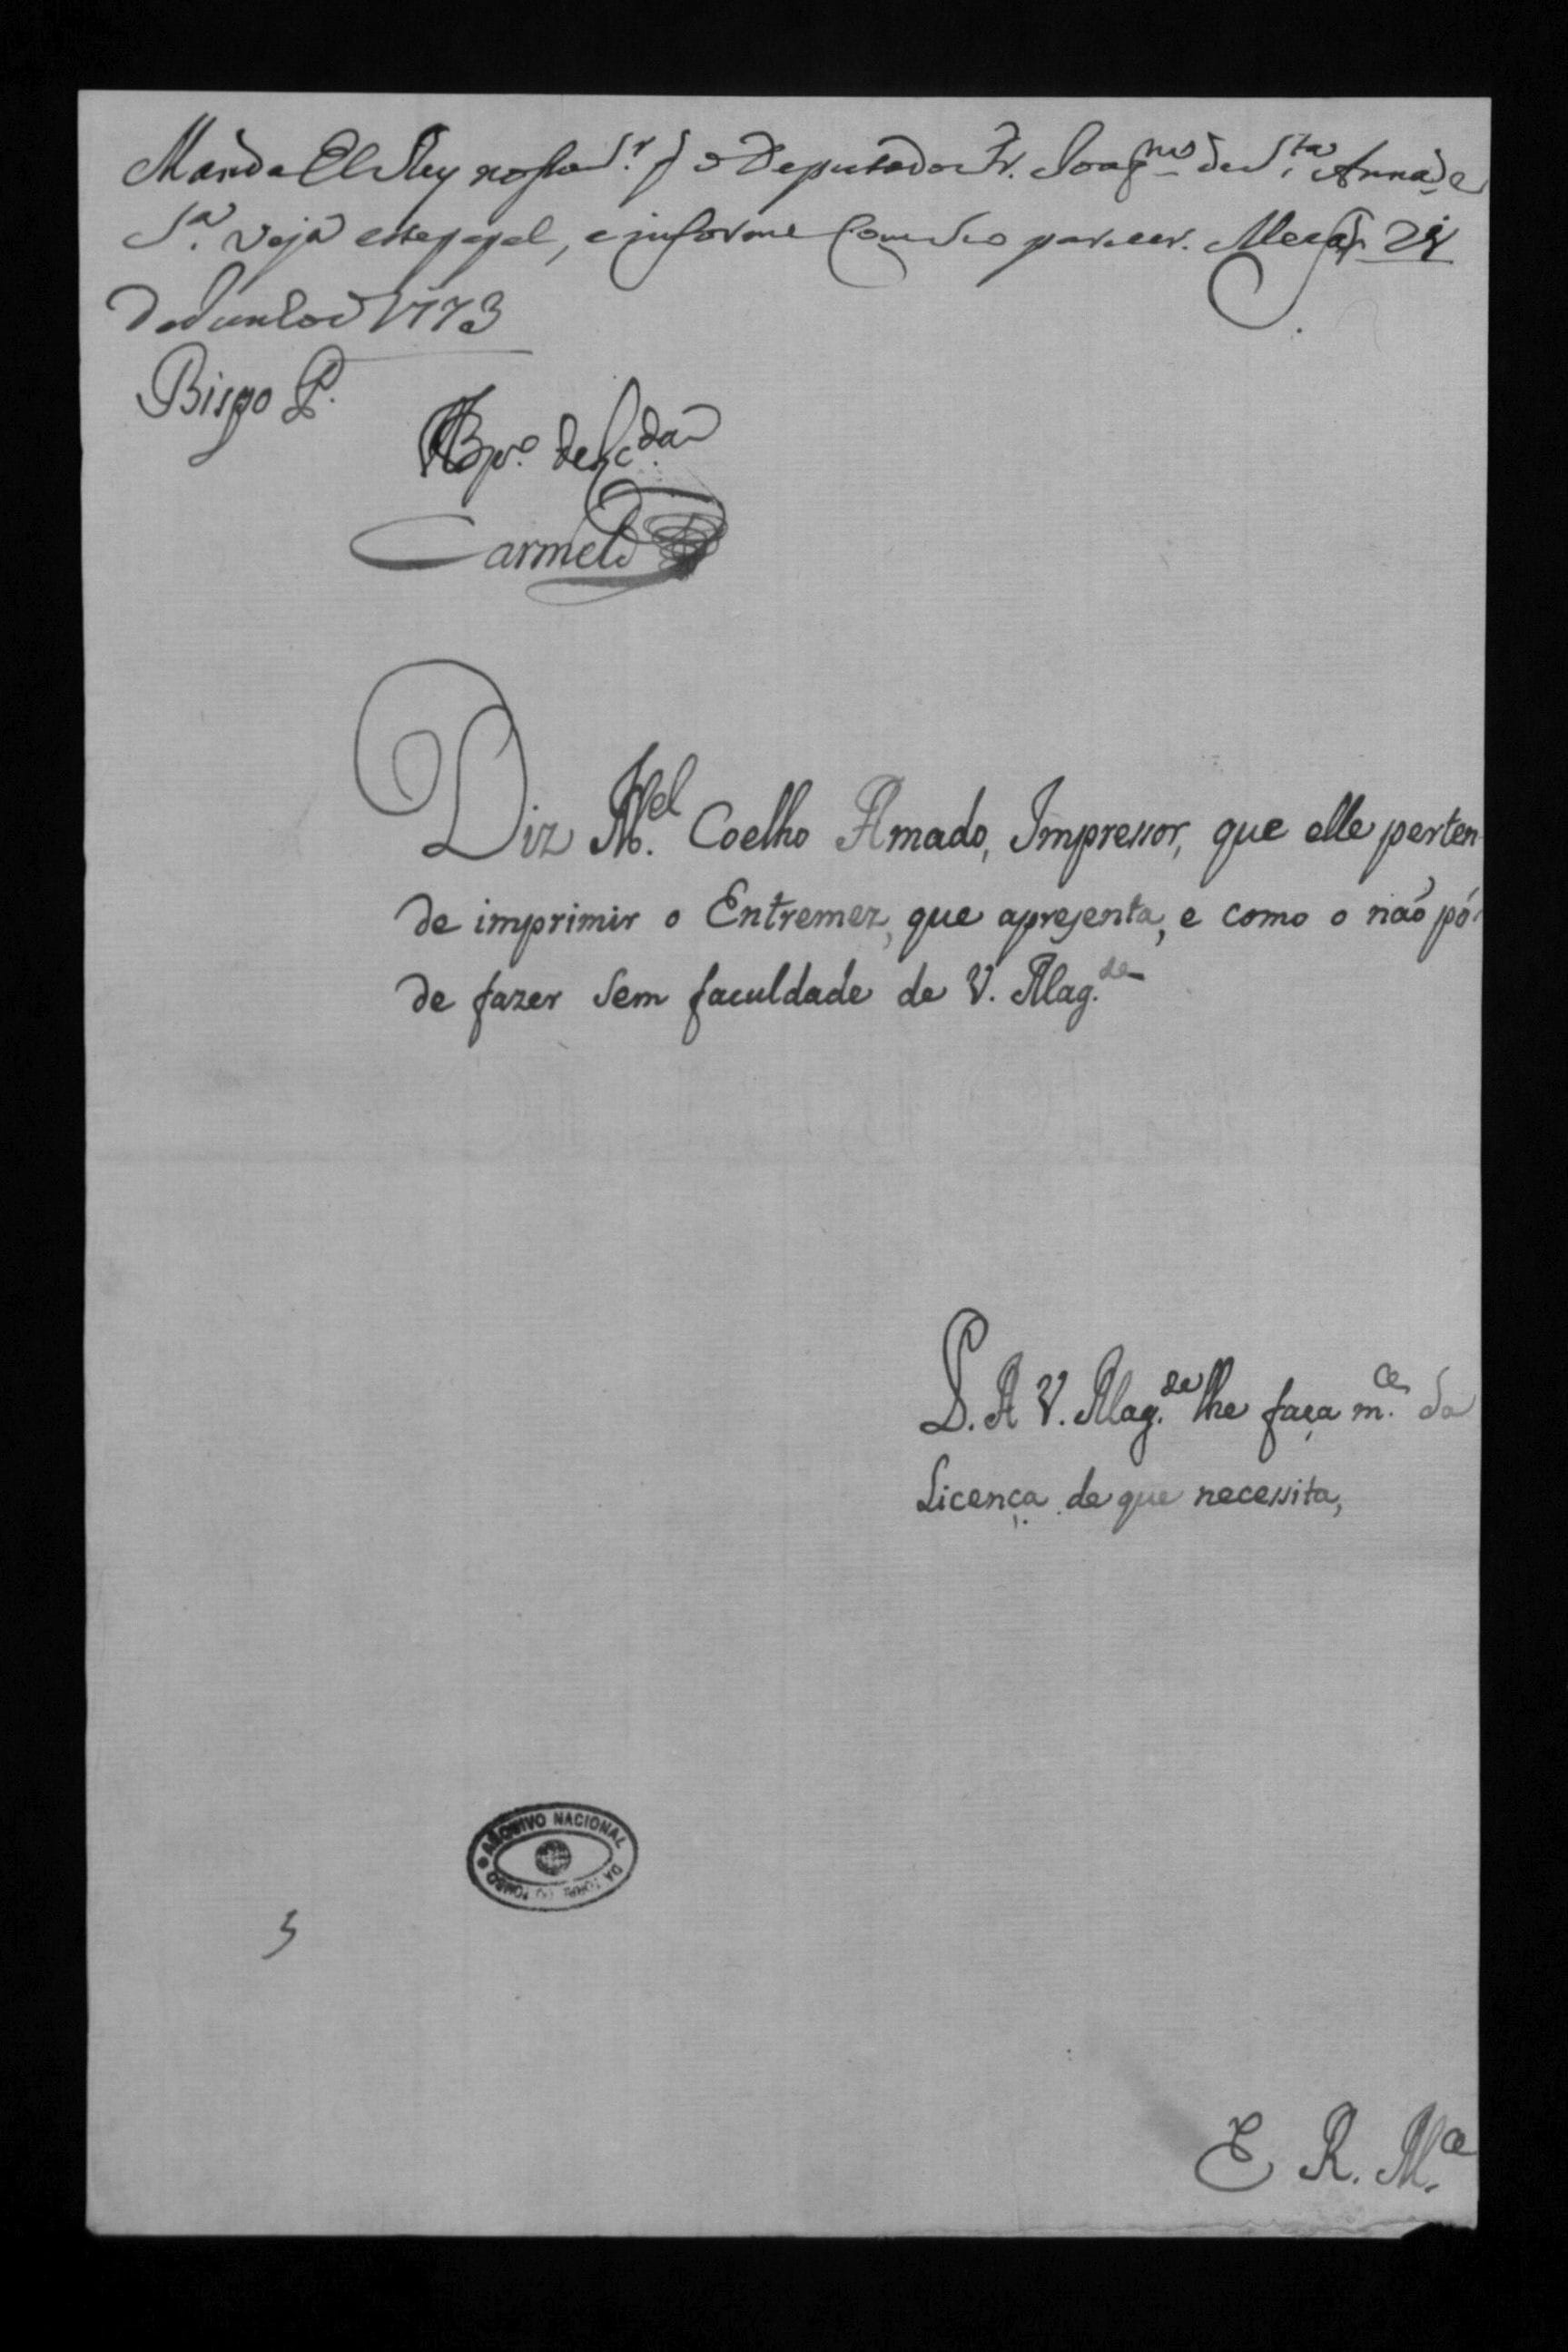 Manda El Rey nosso S.r q o Deputado Fr. Joaq.m de S.ta Anna e
S.a veja este papel, e informe com seo parecer. Meza
de Junho de 1773
Bispo P.
Carmelo
Diz M.el Coelho Amado, Impressor, que elle perten-
de imprimir o Entremez, que apresenta, e como o não pó-
de fazer sem faculdade de V. Mag.de
P. A V. Mag.de lhe faça m.ce da
Licença de que necessita,
ARQUIVO NACIONAL DA TORRE DO TOMBO
E R. M.ce